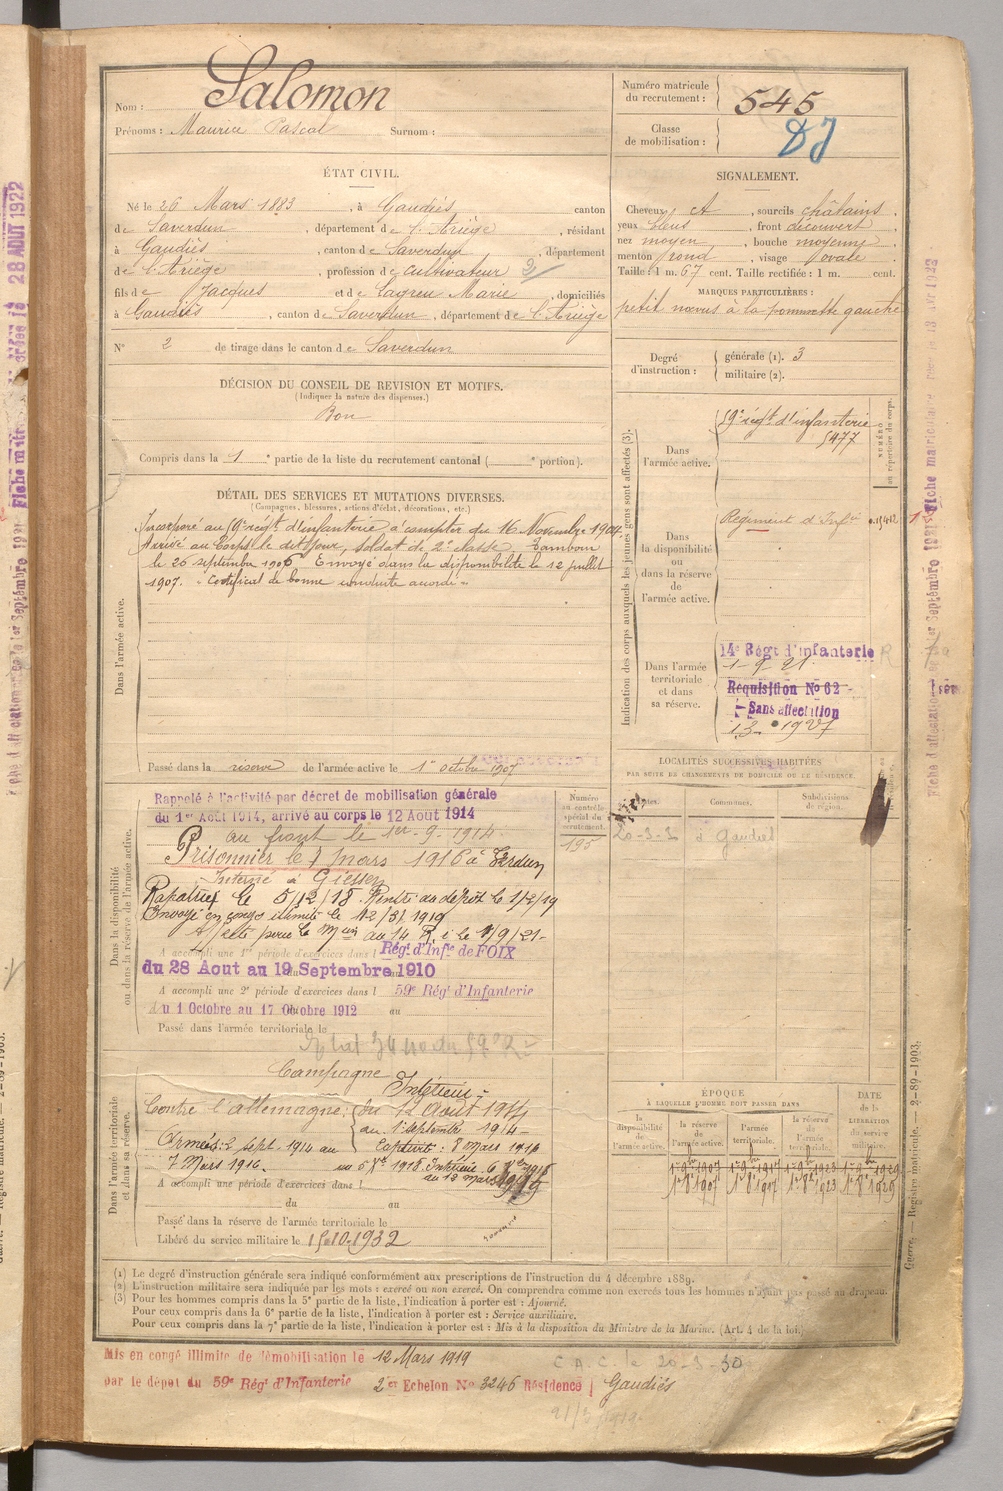 Nom : Salomon
Prénoms : Maurice Pascal Surnom :
Numéro matricule du recrutement : 545
Classe de mobilisation :
ÉTAT CIVIL.
Né le 26 Mars 1883, à Gaudiès canton
de Saverdun, département de l'Ariège, résidant
à Gaudiès, canton de Saverdun, département
de l'Ariège, profession de cultivateur 2
fils de Jacques et de Lagreu Marie, domiciliés
à Gaudiès, canton de Saverdun, département de l'Ariège
N° 2 de tirage dans le canton de Saverdun
SIGNALEMENT.
Cheveux et, sourcils châtains,
yeux bleus, front découvert
nez moyen, bouche moyenne,
menton rond, visage ovale.
Taille : 1 m. 67 cent. Taille rectifiée : 1 m. cent.
MARQUES PARTICULIÈRES :
petit nœvus à la pommette gauche
Degré d'instruction : générale (1). 3
militaire (2).
DÉCISION DU CONSEIL DE REVISION ET MOTIFS.
(Indiquer la nature des dispenses.)
Bon
Compris dans la 1 e partie de la liste du recrutement cantonal ( e portion).
DÉTAIL DES SERVICES ET MUTATIONS DIVERSES.
(Campagnes, blessures, actions d'éclat, décorations, etc.)
Dans l'armée active.
Incorporé au 59e régt d'infanterie à compter du 16 Novembre 1904.
Arrivé au Corps le dit jour, soldat de 2e classe. Tambour
le 20 septembre 1906 Envoyé dans la disponibilité le 12 juillet
1907. "Certificat de bonne conduite accordé"
Passé dans la réserve de l'armée active le 1er octobre 1907
Indication des corps auxquels les jeunes gens sont affectés (3).
NUMÉRO au répertoire du corps.
Dans l'armée active.
59e régt d'infanterie
5477
Dans la disponibilité ou dans la réserve de l'armée active.
Régiment d'Infie
Dans l'armée territoriale et dans sa réserve.
14e Régt d'infanterie
1-9-21
Requisition No 62
Sans affectation
LOCALITÉS SUCCESSIVES HABITÉES
PAR SUITE DE CHANGEMENTS DE DOMICILE OU DE RÉSIDENCE.
Dates. Communes. Subdivisions de région.
20-3-3 à Gaudiès
Numéro au contrôle spécial du recrutement.
195
Dans la disponibilité ou dans la réserve de l'armée active.
Rappelé à l'activité par décret de mobilisation générale
du 1er Août 1914, arrivé au corps le 12 Août 1914
au front le 1er-9-1914
Prisonnier le 7 Mars 1916 à Verdun
Interné à Giessen
Rapatrié le 5/12/18. Rentré au dépôt le 1/2/19
Envoyé en congé illimité le 12/3/1919
Affecté pour le Mon au 14 R.i le 1/9/21-
A accompli une 1re période d'exercices dans l Régt d'Infie de FOIX
du 28 Aout au 19 Septembre 1910
A accompli une 2e période d'exercices dans l 59e Régt d'Infanterie
du 1 Octobre au 17 Octobre 1912 au
Passé dans l'armée territoriale le
Dans l'armée territoriale et dans sa réserve.
Campagne
Contre l'allemagne: Intérieur
du 12 Août 1914
au 1er septembre 1914-
Armées: 2 sept. 1914 au Captivité: 8 Mars 1916
7 Mars 1916. au 5 Xbre 1918. Intérieur 6 Xbre 1918
au 12 mars 1919
A accompli une période d'exercices dans l
du au
Passé dans la réserve de l'armée territoriale le
Libéré du service militaire le 15-10-1932
ÉPOQUE
À LAQUELLE L'HOMME DOIT PASSER DANS
la disponibilité de l'armée active. la réserve de l'armée active. l'armée territoriale. la réserve de l'armée territoriale.
DATE de la LIBÉRATION du service militaire.
1er 9bre 1907 1er 9bre 1917 1er 9bre 1923 1er 9bre 1929
1er 8bre 1907 1er 8bre 1917 1er 8bre 1923 1er 8bre 1929
(1) Le degré d'instruction générale sera indiqué conformément aux prescriptions de l'instruction du 4 décembre 1889.
(2) L'instruction militaire sera indiquée par les mots : exercé ou non exercé. On comprendra comme non exercés tous les hommes n'ayant pas passé au drapeau.
(3) Pour les hommes compris dans la 5e partie de la liste, l'indication à porter est : Ajourné.
Pour ceux compris dans la 6e partie de la liste, l'indication à porter est : Service auxiliaire.
Pour ceux compris dans la 7e partie de la liste, l'indication à porter est : Mis à la disposition du Ministre de la Marine. (Art. 4 de la loi.)
Mis en congé illimité de démobilisation le 12 Mars 1919
par le dépôt du 59e Régt d'Infanterie 2e Echelon No 3246 Résidence Gaudiès
C.A.C. le 20-3-30
Guerre. — Registre matricule. — 2-89-1903.
28 AOUT 1922